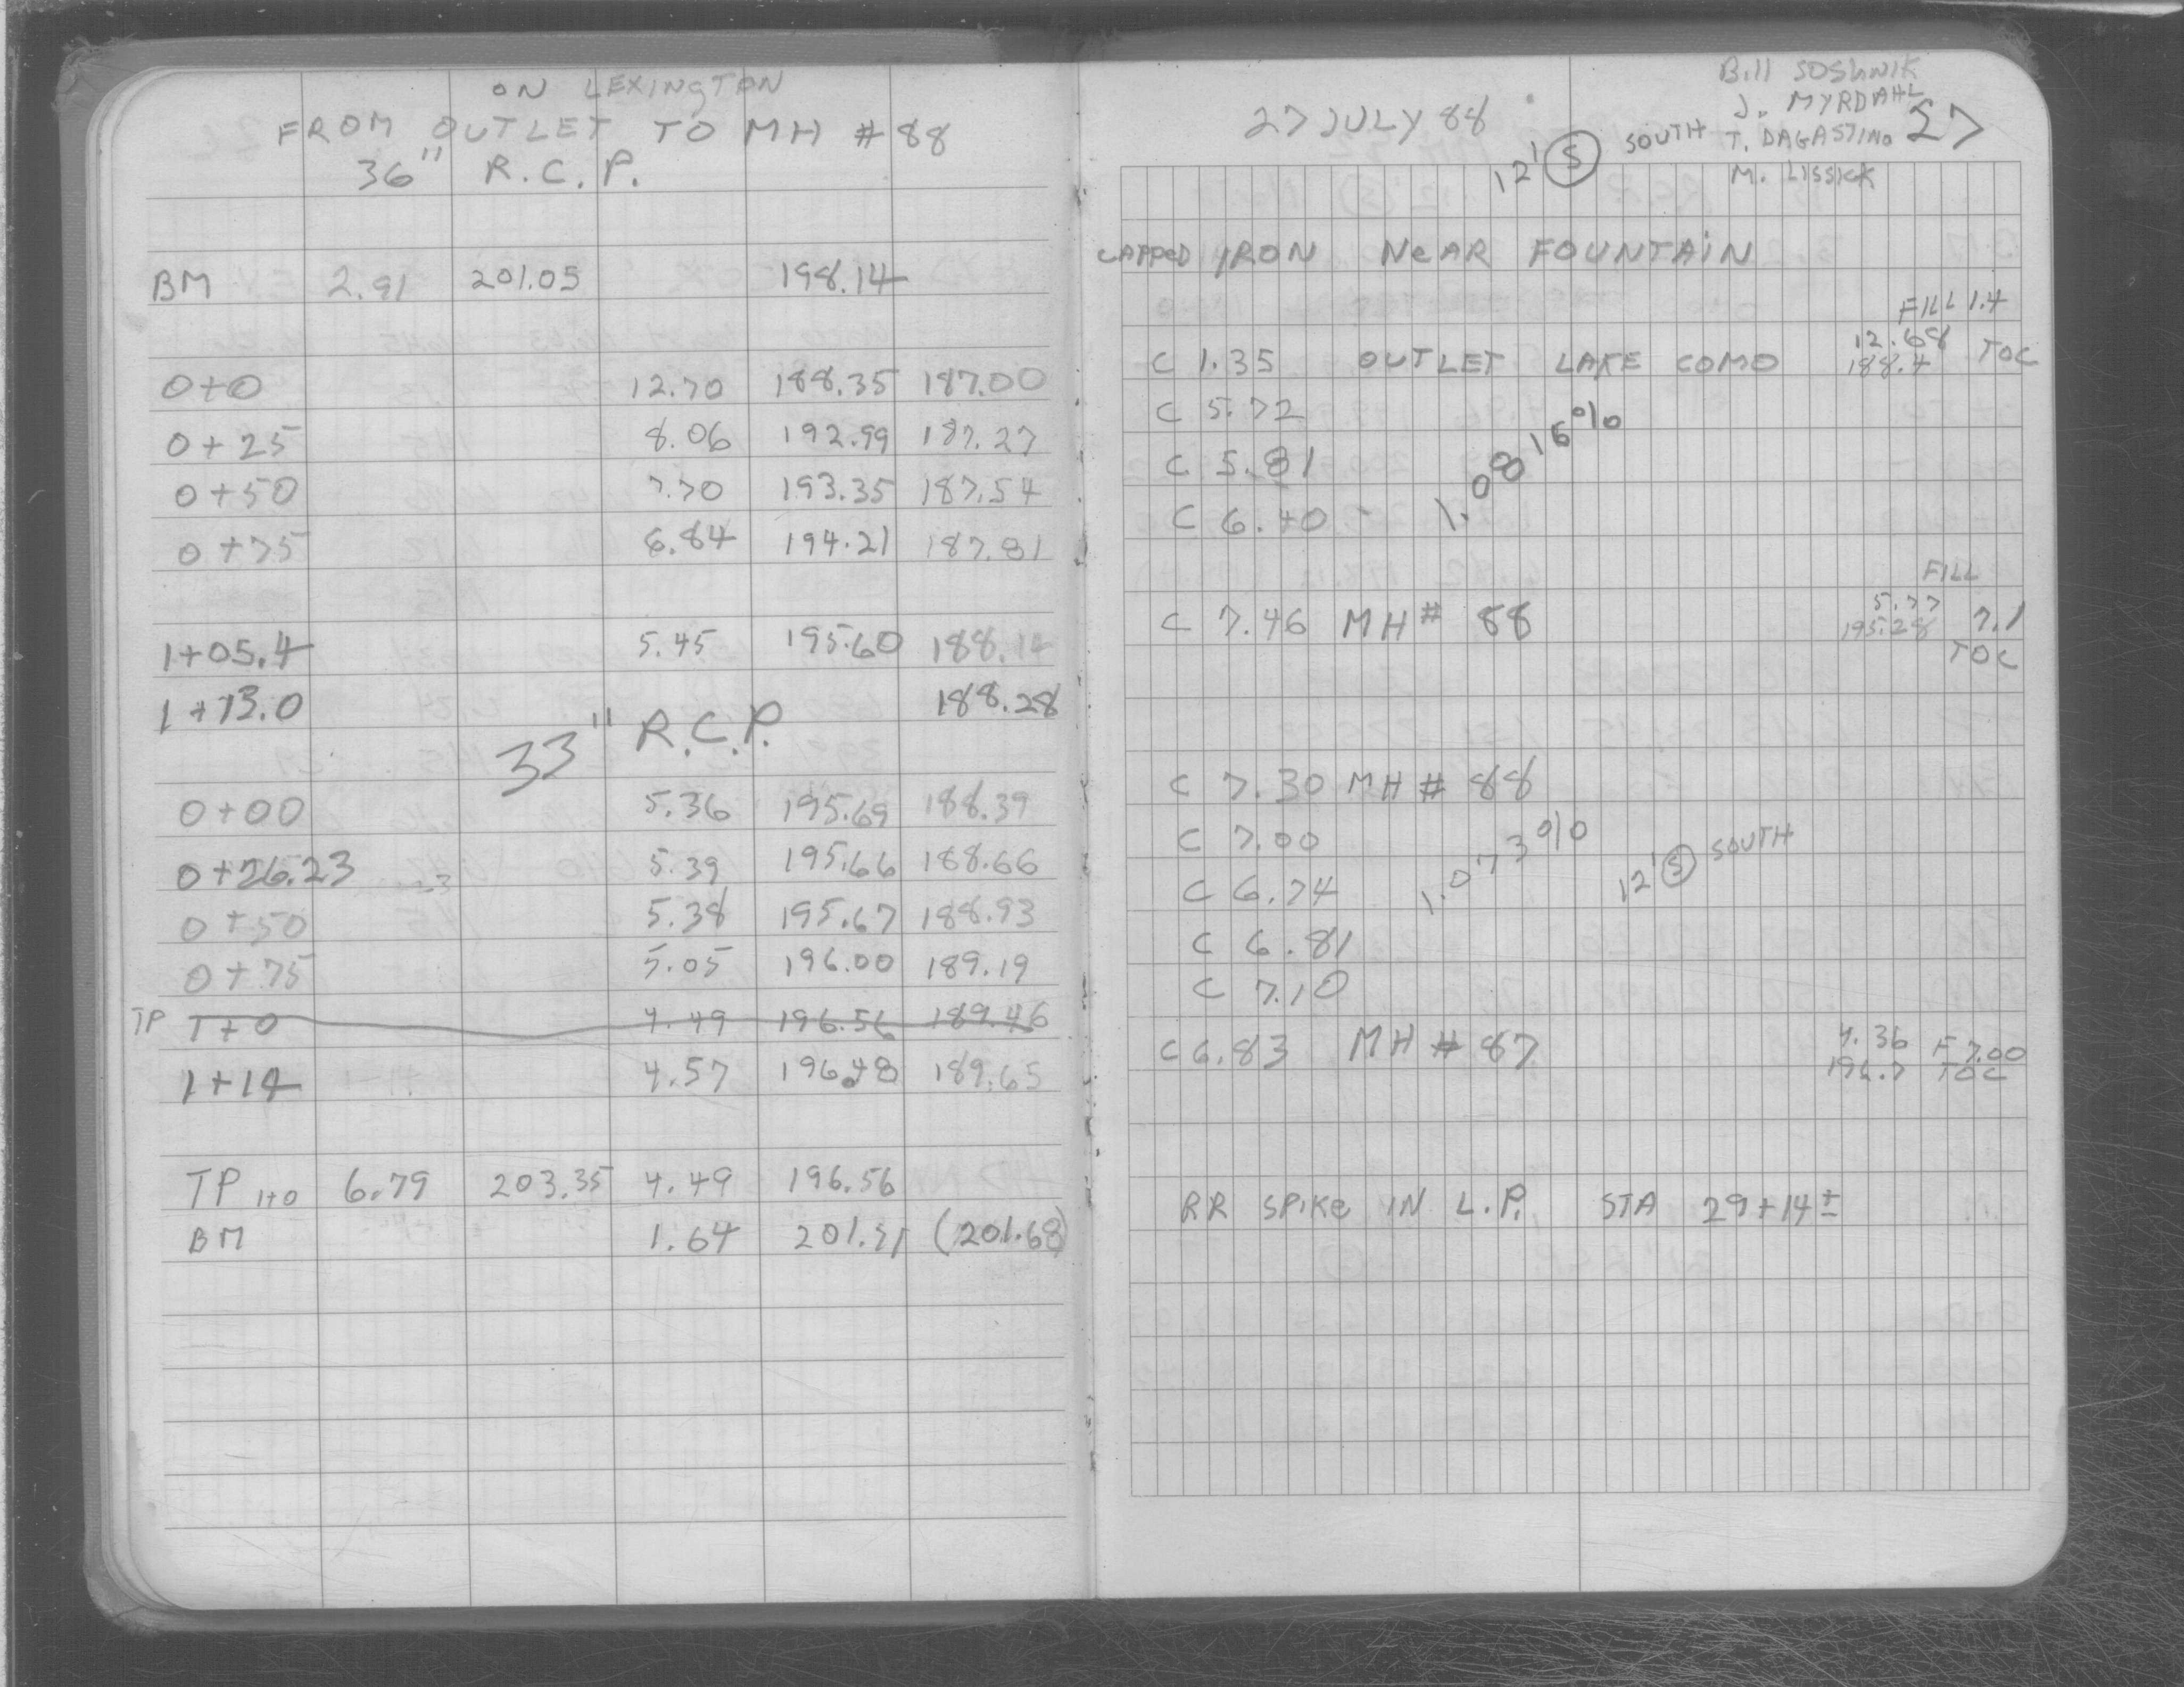 ON LEXINGTON
FROM OUTLET TO MH # 88
36" R.C.P.
BM 2.91 201.05 198.14
0+0 12.70 188.35 187.00
0+25 8.06 192.99 187.27
0+50 7.70 193.35 187.54
0+75 6.84 194.21 187.81
1+05.4 5.45 195.60 188.14
1+13.0 188.28
33" R.C.P.
0+00 5.36 195.69 188.39
0+26.23 5.39 195.66 188.66
0+50 5.38 195.67 188.93
0+75 5.05 196.00 189.19
TP 1+0 4.49 196.56 189.46
1+14 4.57 196.48 189.65
TP 1+0 6.79 203.35 4.49 196.56
BM 1.64 (201.68)
27 JULY 88
12' S SOUTH
Bill SOShNIK
J. MYRDAHL
T. DAGASTINO
M. LISSICK
27
CAPPED IRON NeAR FOUNTAIN
FILL 1.4
C 1.35 OUTLET LAKE COMO 12.68 TOC
188.4
C 5.72
C 5.81
C 6.40
1.0816%
FILL
C 7.46 MH# 88 5.77 7.1
195.28
TOC
C 7.30 MH # 88
C 7.00
C 6.74
1.073%
12' S SOUTH
C 6.81
C 7.10
C 6.83 MH # 87 4.36 F 7.00
196.7 TOC
RR SPIKe IN L.P. STA 29+14±